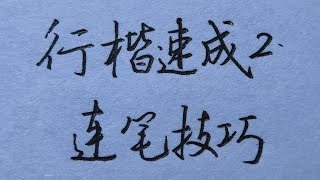 行楷速成2.
连笔技巧